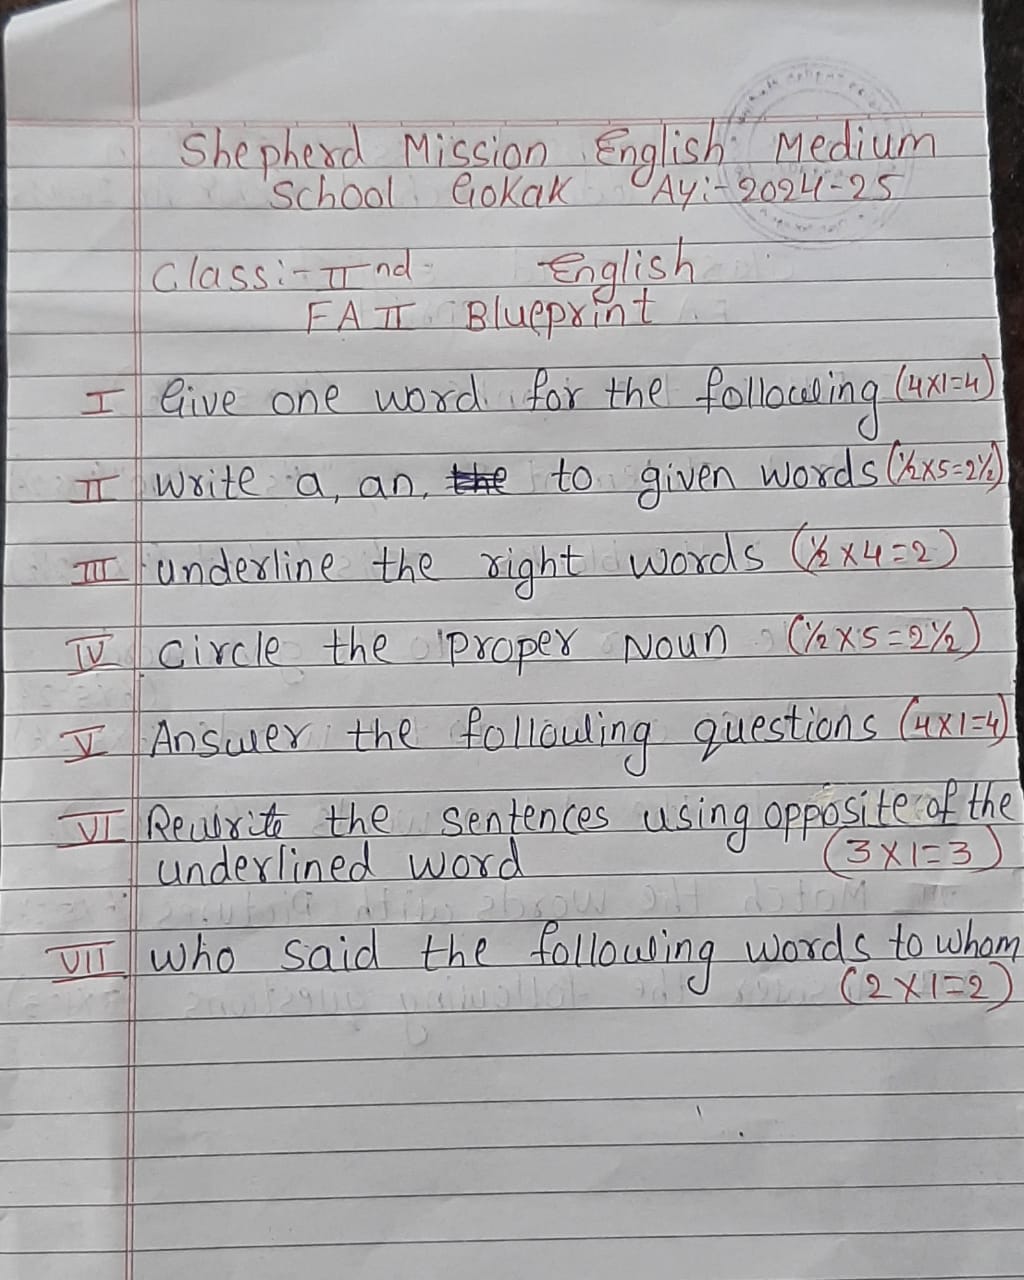 Shepherd Mission English Medium
School Gokak AY:- 2024-25
Class:- II nd English
FA II Blueprint
I Give one word for the following (4x1=4)
II write a, an, the to given words (½x5=2½)
III underline the right words (½ x4=2)
IV circle the Proper Noun (½ x5=2½)
V Answer the following questions (4x1=4)
VI Rewrite the sentences using opposite of the
underlined word (3x1=3)
VII who said the following words to whom
(2x1=2)